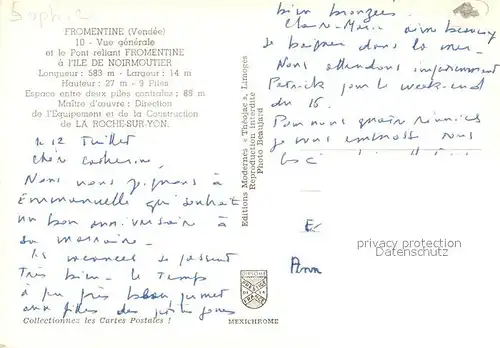 FROMENTINE (Vendée)
10 - Vue générale
et le Pont reliant FROMENTINE
à l'ILE DE NOIRMOUTIER
Longueur : 583 m - Largeur : 14 m
Hauteur : 27 m - 9 Piles
Espace entre deux piles centrales : 85 m
Maître d'œuvre : Direction
de l'Equipement et de la Construction
de LA ROCHE-SUR-YON.
12 Juillet
Chère Catherine,
Nous nous joignons à
Emmanuelle qui souhait
un bon anniversaire à
sa marraine.
Les vacances se passent
Très bien. Le Temps
à peu près permet
aux filles des
Collectionnez les Cartes Postales !
Editions Modernes « Théojac », Limoges
Reproduction interdite
Photo Beaujard
MEXICHROME
bien bronzées.
Claire-Marie aime beaucoup
se baigner dans la mer.
Nous attendons impatiemment
Patrick pour le week-end
du 15.
réunies
je vous embrasse
privacy protection
Datenschutz